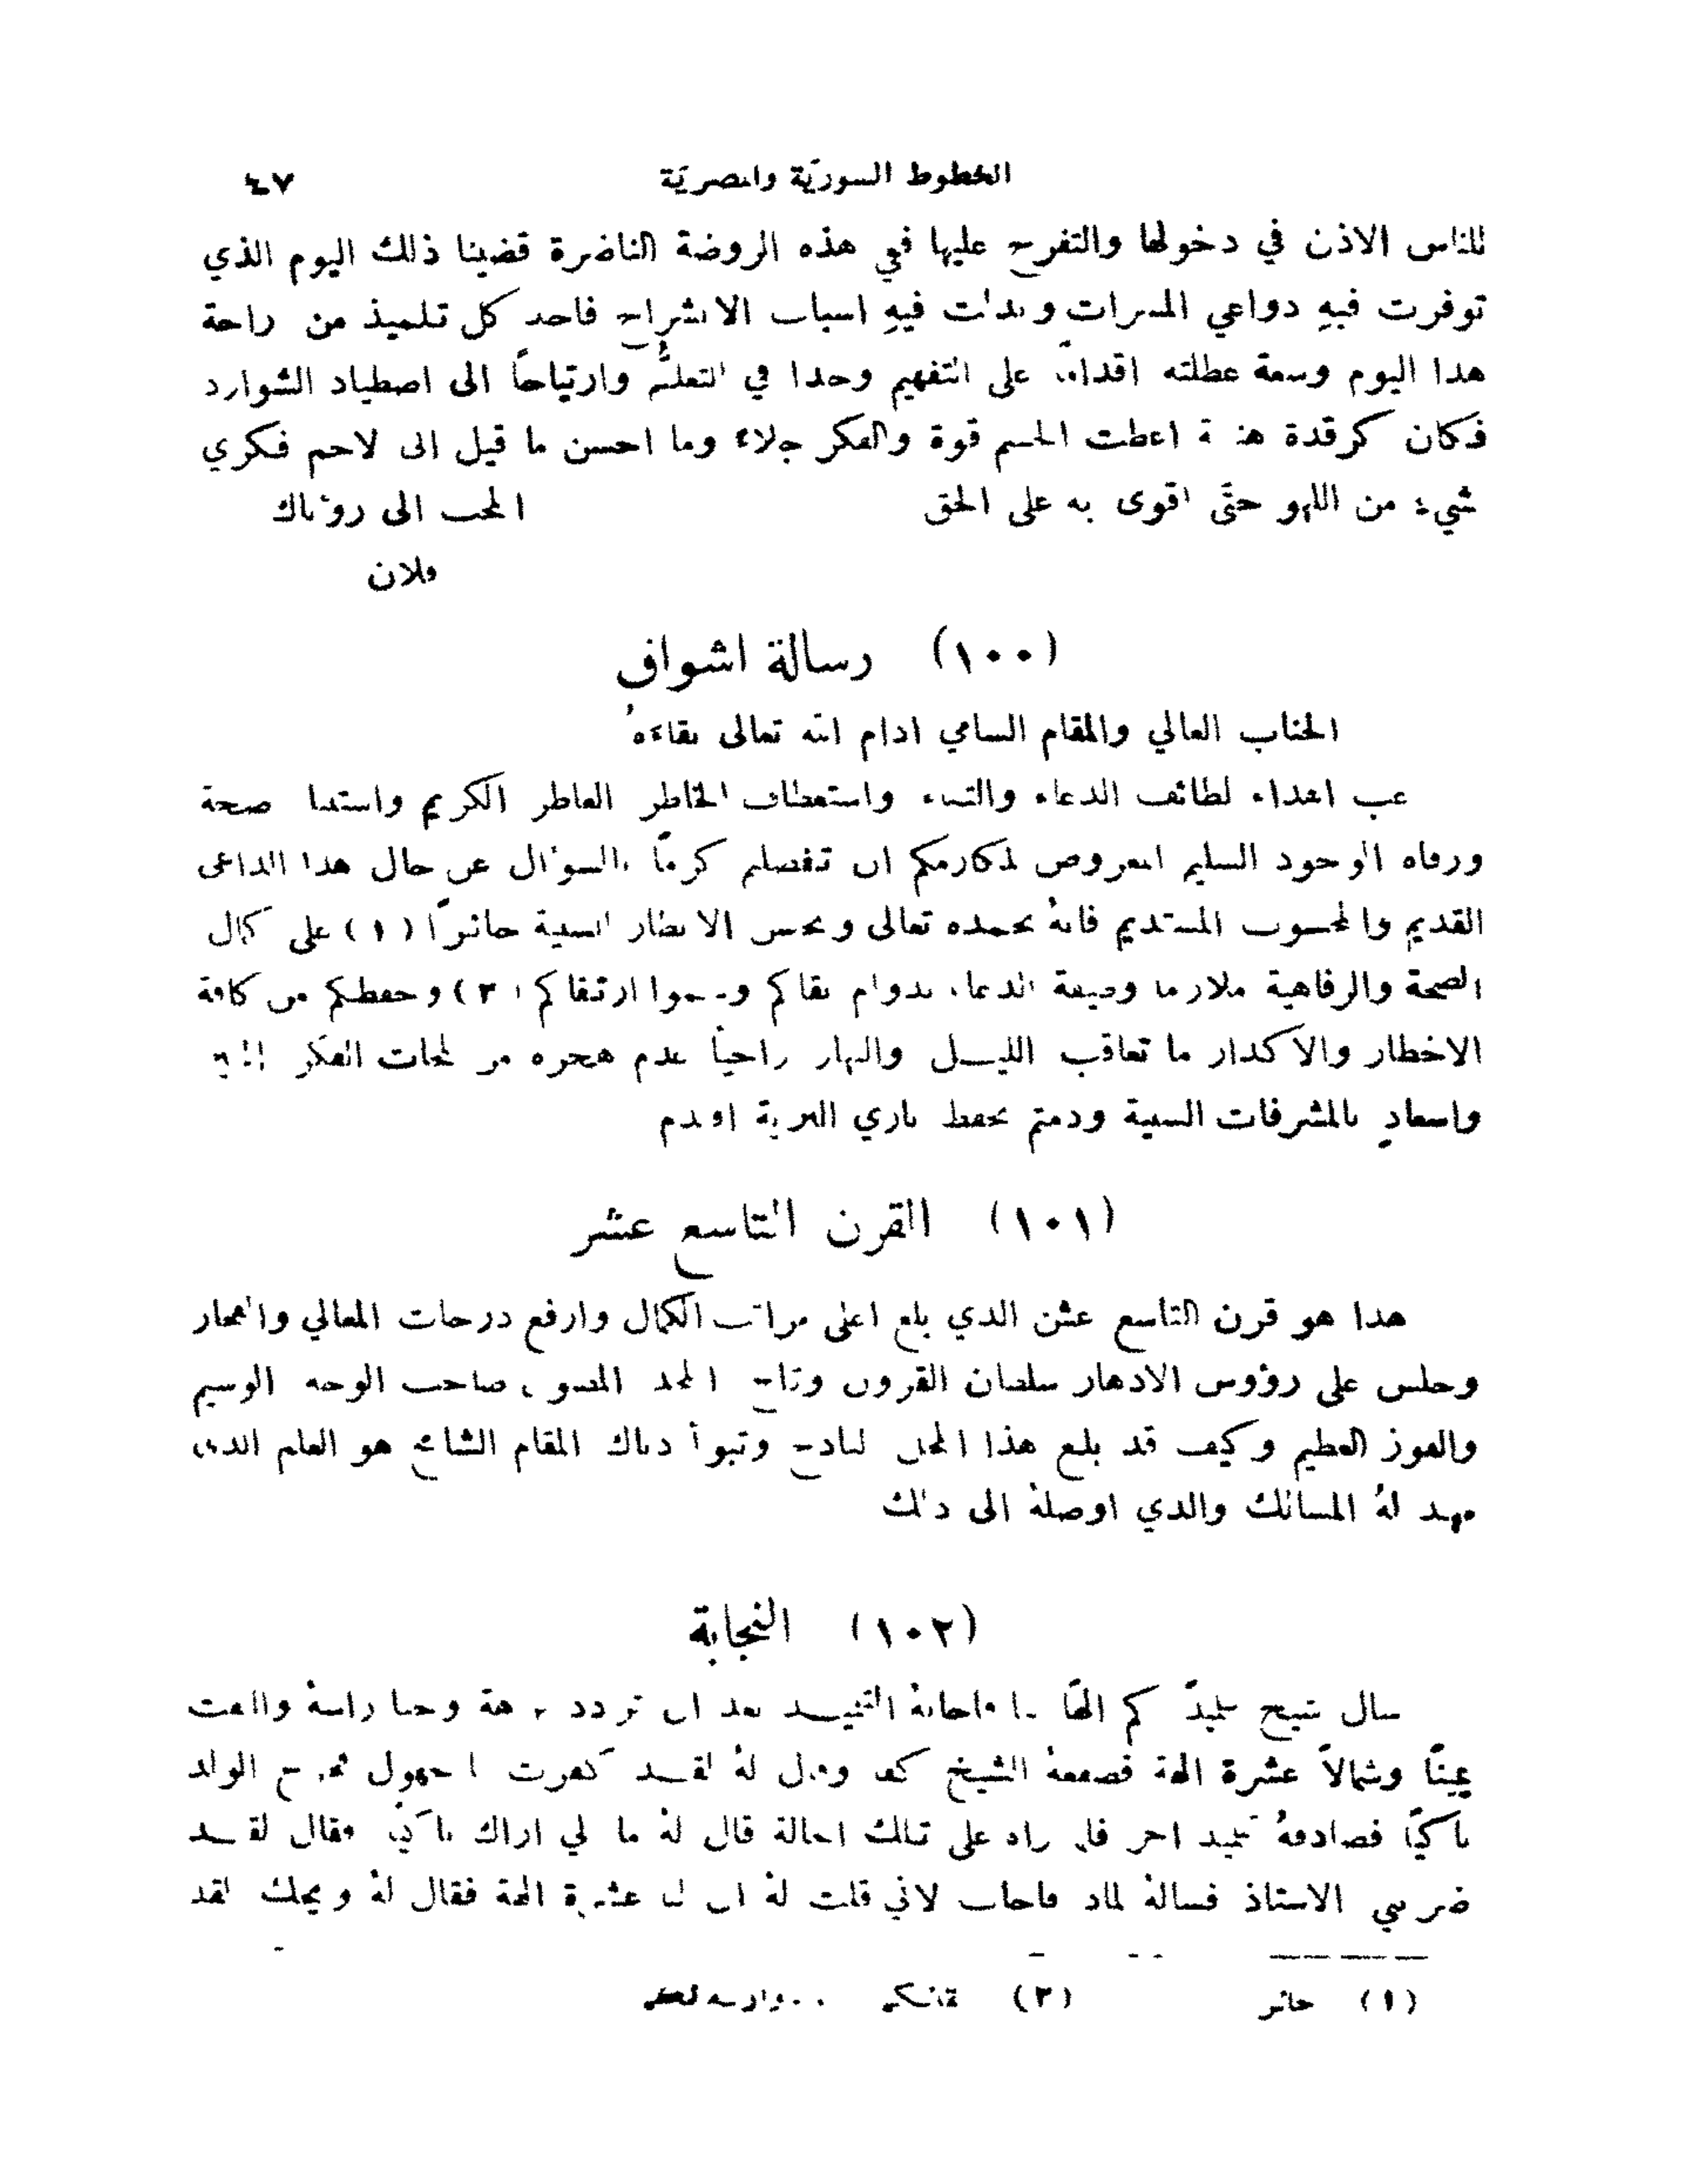 الخطوط السوريّة والمصريّة ٤٧
للناس الاذن في دخولها والتفرح عليها في هذه الروضة الناضرة قضينا ذلك اليوم الذي
توفرت فيهِ دواعي المسرات وبدلت فيهِ اسباب الانشراح فاخد كل تلميذ من راحة
هدا اليوم وسعة عطلته اقدامًا على التفهيم وجدا في التعلُّم وارتياحًا الى اصطياد الشوارد
فكان كرقدة اعطت الجسم قوة والفكر جلاء وما احسن ما قيل انى لاحم فكري
شيء من اللهو حتَّى اقوى به على الحق المحب الى روٴياك
فلان
(١٠٠) رسالة اشواق
الجناب العالي والمقام السامي ادام الله تعالى بقاءهُ
غب اهداء لطائف الدعاء والثناء واستعطاف الخاطر العاطر الكريم صحة
ورفاه الوجود السليم المعروض لمكارمكم ان تفضلتم كرمًا بالسوٴال عن حال هدا الداعى
القديم والمحسوب المستديم فانهُ بحمده تعالى وبحسن الانظار السنية حائزًا (١) على كمال
الصحة والرفاهية ملازما وظيفة الدعاء بدوام بقاكم وسموا ارتقاكم (٢) وحفظكم من كافة
الاخطار والاكدار ما تعاقب الليل والنهار راجياً عدم هجره من لمحات الفكر
واسعادِ بالمشرفات السنية ودمتم بحفظ باري البرية افندم
(١٠١) القرن التاسع عشر
هدا هو قرن التاسع عشر الدي بلغ اعلى مراتب الكمال وارفع درجات المعالي والفخار
وجلس على روٴوس الادهار سلطان القرون وتاج المجد صاحب الوجه الوسيم
والفوز العظيم وكيف قد بلغ هذا المحل الباذح وتبوأ دياك المقام الشامخ هو العلم الدي
مهد لهُ المسالك والدي اوصلهُ الى دلك
(١٠٢) النجابة
سال شيخ تلميذً كم الهًا فاجابهُ التلميذ بعد ان تردد برهة وحنا راسهُ والتفت
يمينًا وشمالاً عشرة الهة فصفعهُ الشيخ كفا وقال لهُ لقد كفرت الولد
باكيًا فصادفهُ تلميد اخر فلما راه على تلك الحالة قال لهُ ما لي اراك باكيًا فقال لقد
ضربني الاستاذ فسالهُ لماد فاجاب لاني قلت لهُ ان لنا عشرة الهة فقال لهُ ويحك لقد
(١) حائز (٢)